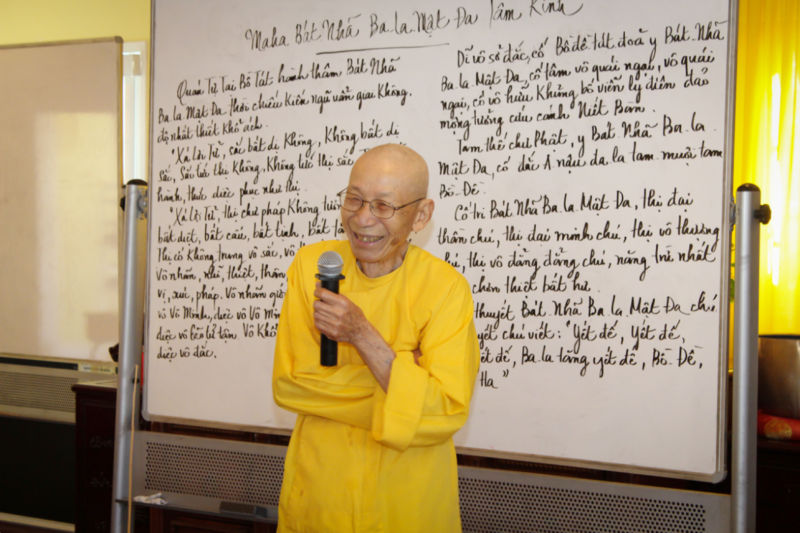 Maha Bát Nhã Ba La Mật Đa Tâm Kinh
Quán Tự Tại Bồ Tát hành thâm Bát Nhã
Ba La Mật Đa thời chiếu kiến ngũ uẩn giai Không.
độ nhất thiết Khổ ách.
"Xá Lợi Tử, sắc bất dị Không, Không bất dị
sắc, Sắc tức thị Không, Không tức thị sắc,
hành, thức diệc phục như thị.
"Xá Lợi Tử, thị chư pháp Không
bất diệt, bất cấu, bất tịnh, bất
Thị cố Không trung vô sắc, vô
Vô nhãn, nhĩ, thiệt, thân
vị, xúc, pháp. Vô nhãn giới
vô Vô Minh, diệc vô Vô Minh
diệc vô Lão tử tận Vô Khổ
diệc vô đắc.
Dĩ vô sở đắc, cố Bồ đề tát đoả y Bát Nhã
Ba La Mật Đa, cố tâm vô quái ngại, vô quái
ngại, cố vô hữu Khủng bố viễn ly điên đảo
mộng tưởng cứu cánh Niết Bàn.
Tam thế chư Phật, y Bát Nhã Ba La
Mật Đa, cố đắc A nậu đa la tam muội tam
Bồ Đề.
Cố tri Bát Nhã Ba La Mật Đa, thị đại
thần chú, thị đại minh chú, thị vô thượng
chú, thị vô đẳng đẳng chú, năng trừ nhất
chơn thiệt bất hư.
thuyết Bát Nhã Ba La Mật Đa chú
chú viết: "Yết đế, Yết đế,
đế, Ba la tăng yết đế, Bồ Đề,
Ha"